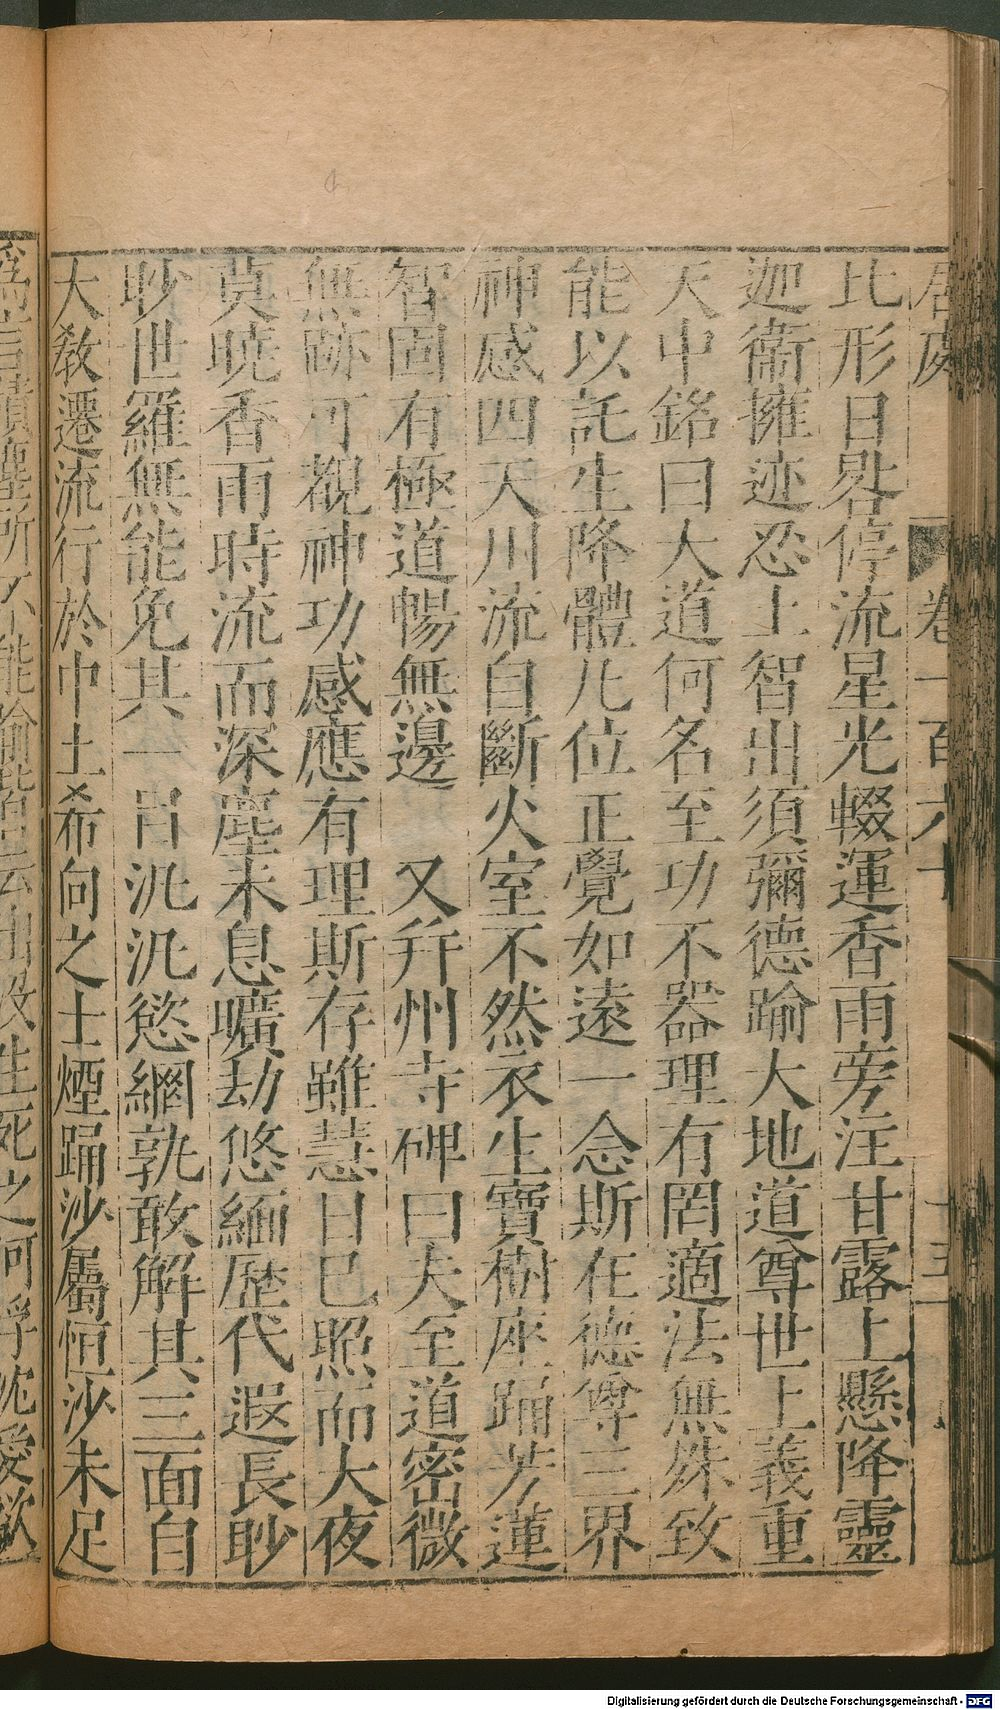 卷一百六十 十五
比形日晷停流星光輟運香雨旁注甘露上懸降靈
迦衛擁迹忍土智出須彌德踰大地道尊世上義重
天中銘曰大道何名至功不器理有罔適法無殊致
能以託生降體凡位正覺如遠一念斯在德尊三界
神感四天川流自斷火室不然衣生寶樹座踊芳蓮
智固有極道暢無邊　又幷州寺碑曰夫至道密微
無跡可觀神功感應有理斯存雖慧日已照而大夜
莫曉香雨時流而深塵未息曠劫悠緬歷代遐長眇
眇世羅無能免其一目汎汎慾網孰敢解其三面自
大敎遷流行於中土希向之士煙踊沙屬恒沙未足
生死之河浮沈愛欲
Digitalisierung gefördert durch die Deutsche Forschungsgemeinschaft - DFG